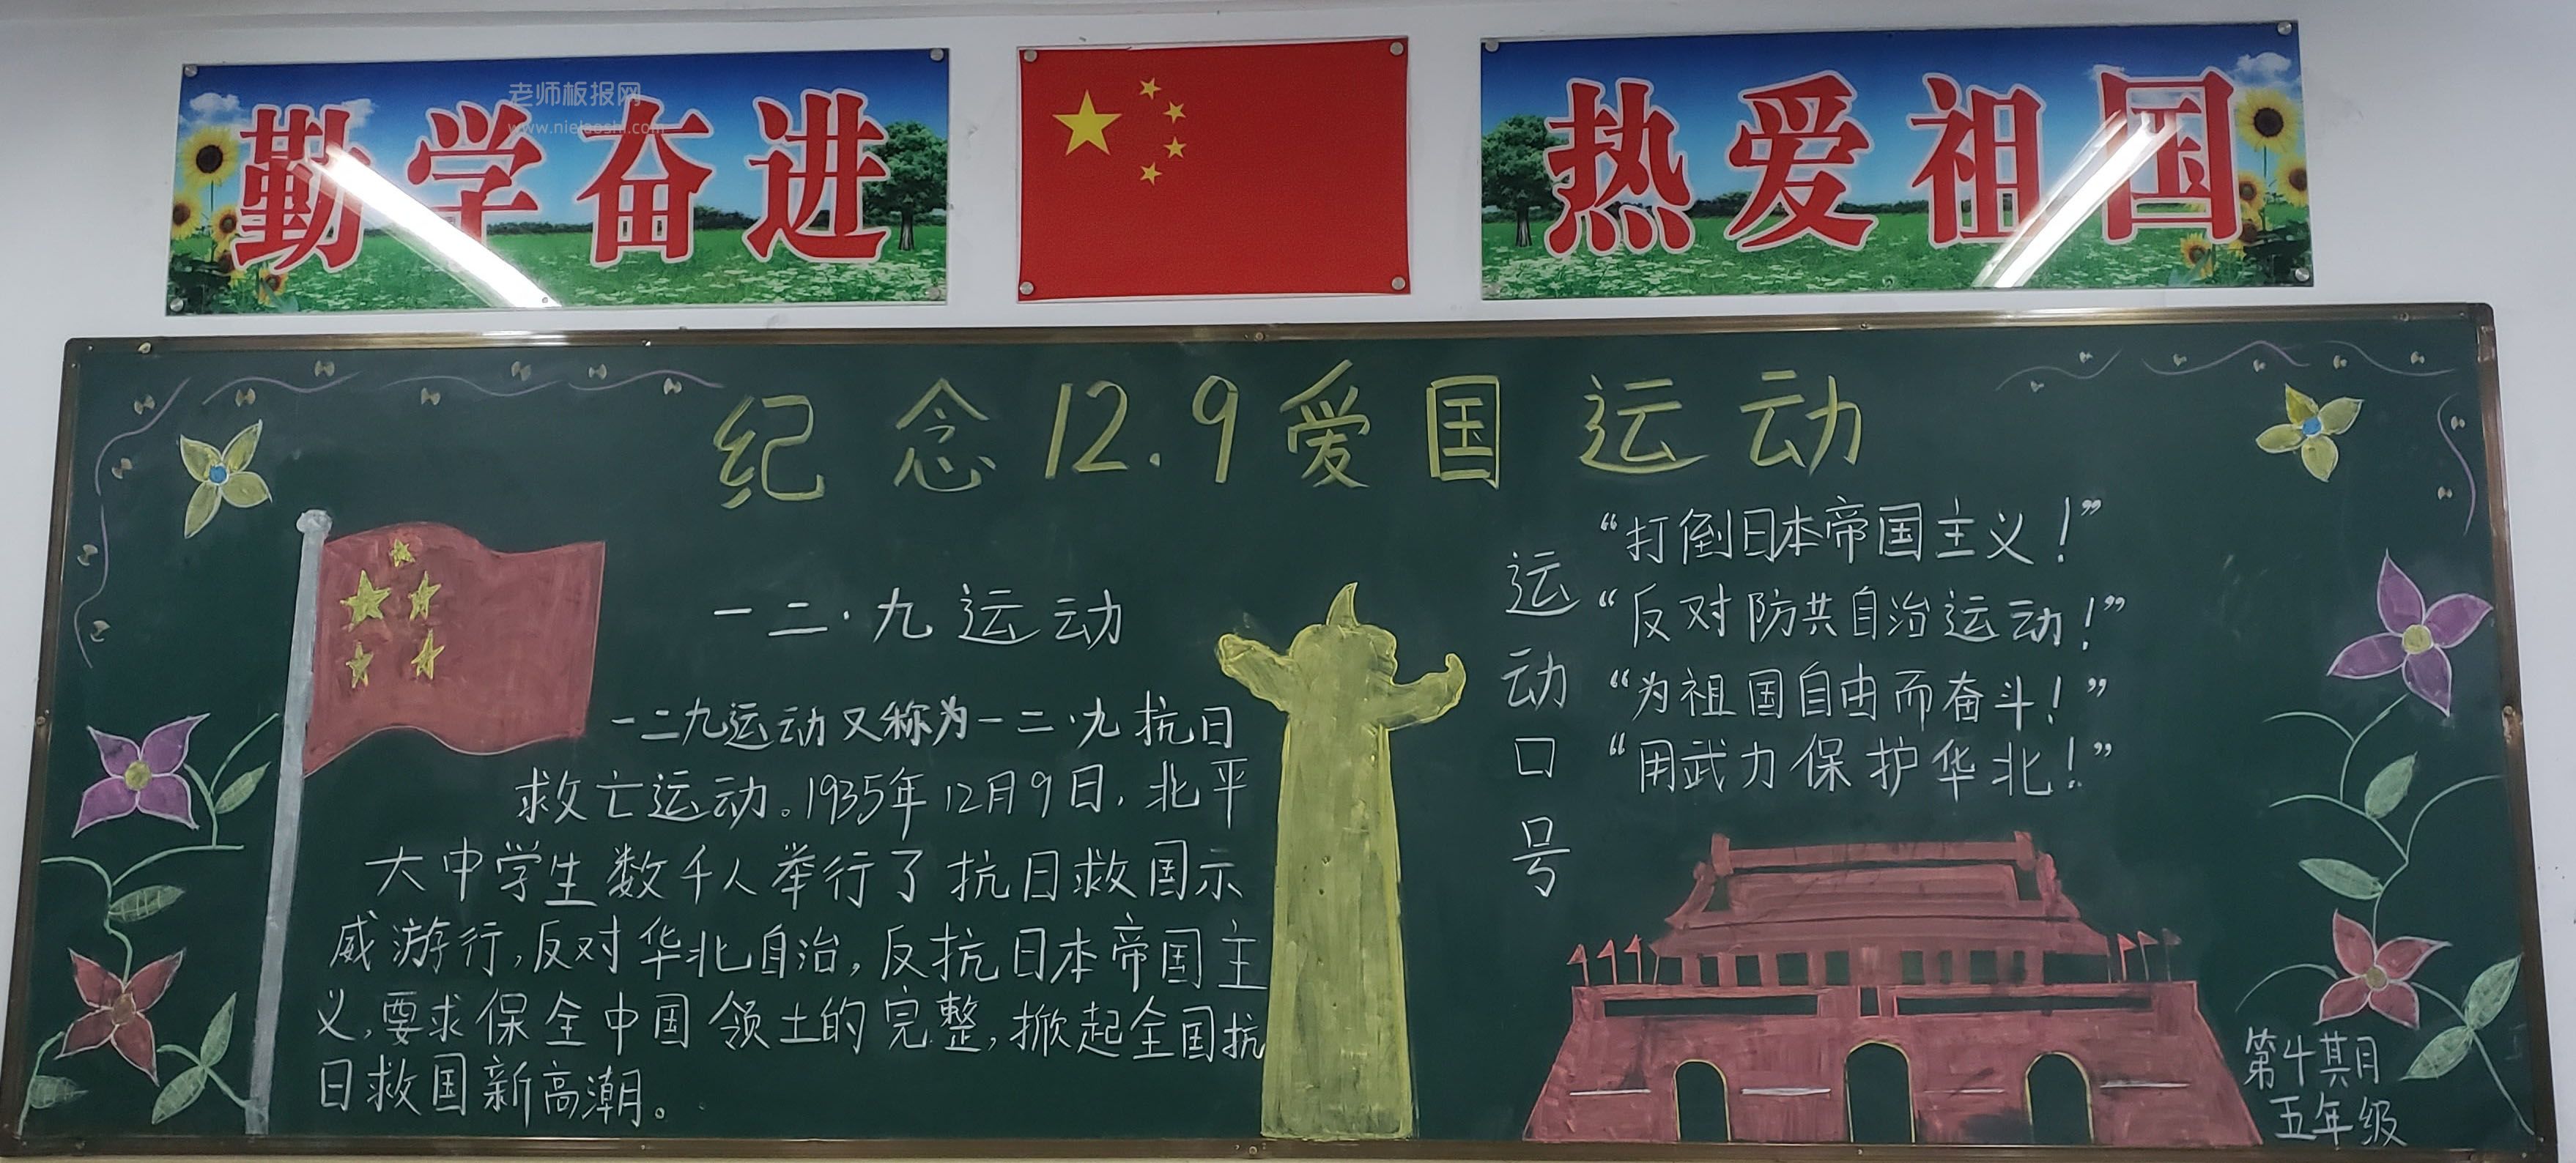 老师板报网
www.nielaoshi.com
勤学奋进
热爱祖国
纪念12.9爱国运动
一二·九运动
一二九运动又称为一二·九抗日
救亡运动。1935年12月9日,北平
大中学生数千人举行了抗日救国示
威游行,反对华北自治,反抗日本帝国主
义,要求保全中国领土的完整,掀起全国抗
日救国新高潮。
运动口号
“打倒日本帝国主义!”
“反对防共自治运动!”
“为祖国自由而奋斗!”
“用武力保护华北!”
第十期
五年级